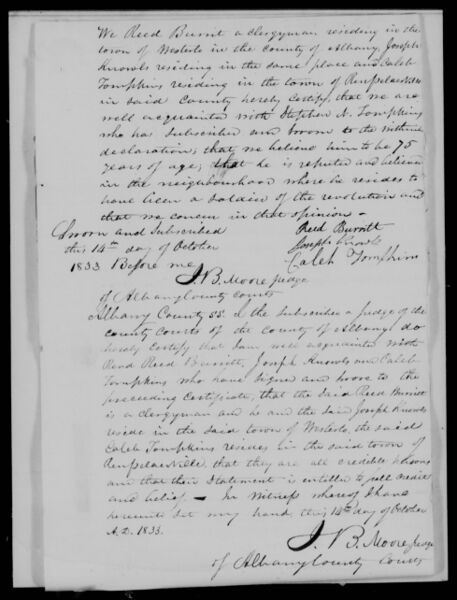 We Reed Burrit a clergyman residing in the
town of Westerlo in the county of Albany, Joseph
Knowls residing in the same place and Caleb
Tompkins residing in the town of Renselaerville
in said County hereby Certify, that we are
well acquainted with Stephen N. Tompkins
who has subscribed and sworn to the within
declaration, that we believe him to be 75
years of age, that he is reputed and believed
in the neighbourhood where he resides to
have been a soldier of the revolution and
that we concur in that opinion -
Sworn and subscribed
this 14th day of October
1833 Before me
Reed Burritt
Joseph Knowls
Caleb Tompkins
J. B. Moore judge
of Albany County courts
Albany County SS. I the subscriber a judge of the
county Courts of the County of Albany do
hereby certify that I am well acquainted with
Revd Reed Burritt, Joseph Knowls and Caleb
Tompkins who have signed and swore to the
preceeding Certificate, that the said Reed Burritt
is a clergyman and he and the said Joseph Knowls
reside in the said town of Westerlo, the said
Caleb Tompkins resides in the said town of
Renselaerville, that they are all credible persons
and that their statement is entitled to full credit
and belief, - In witness whereof I have
hereunto set my hand this 14th day of October
A.D. 1833.
J. B. Moore judge
of Albany County Courts